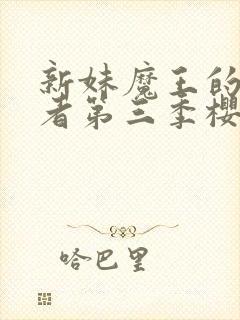 新妹魔王的
者第三季樱
哈巴里